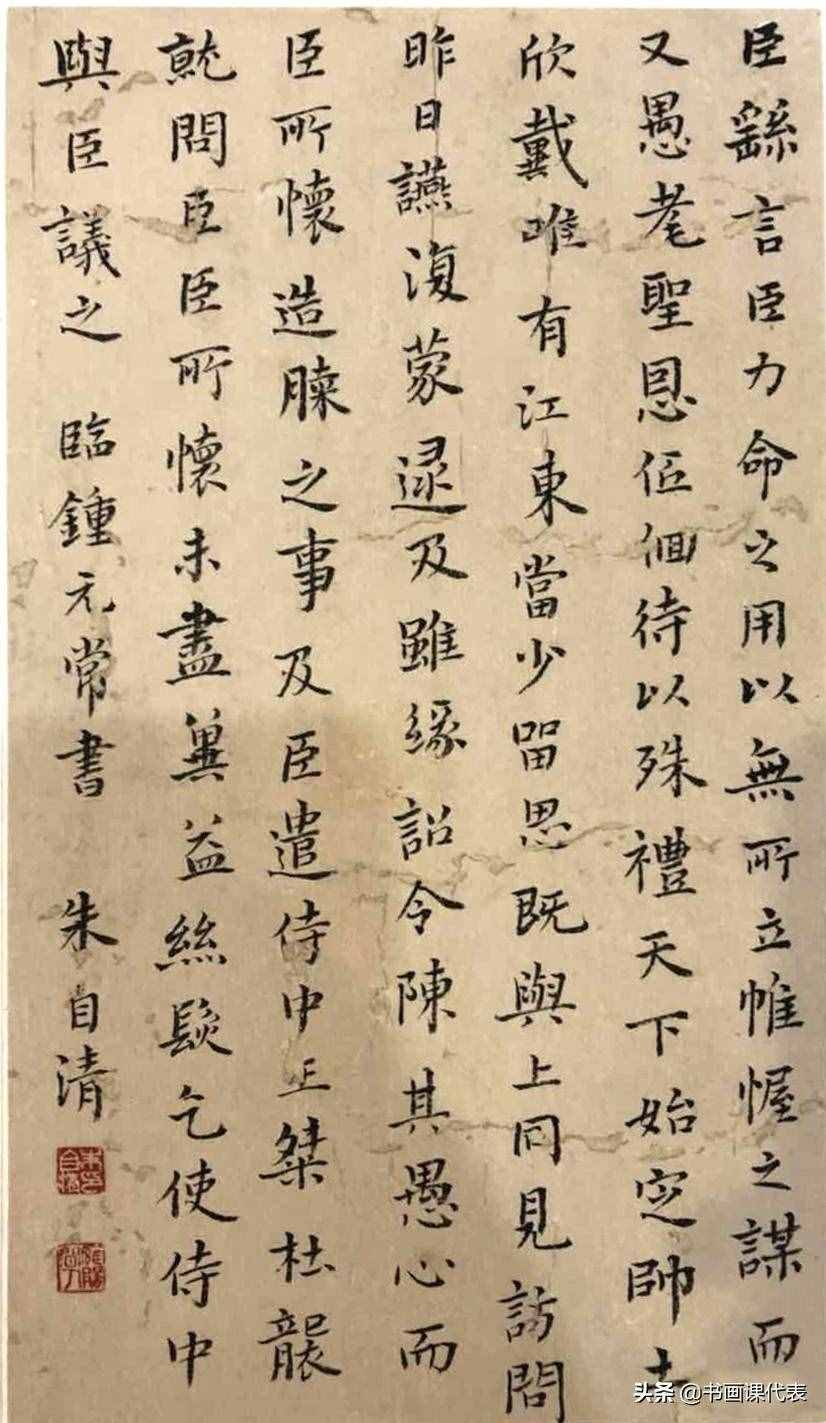 臣繇言臣力命之用以無所立帷幄之謀而
又愚耄聖恩低佪待以殊禮天下始定帥土
欣戴唯有江東當少留思既與上同見訪問
昨日讌復蒙逮及雖緣詔令陳其愚心而
臣所懷造膝之事及臣遣侍中王粲杜襲
就問臣臣所懷未盡冀益絲髮乞使侍中
與臣議之 臨鍾元常書 朱自清
头条 @书画课代表